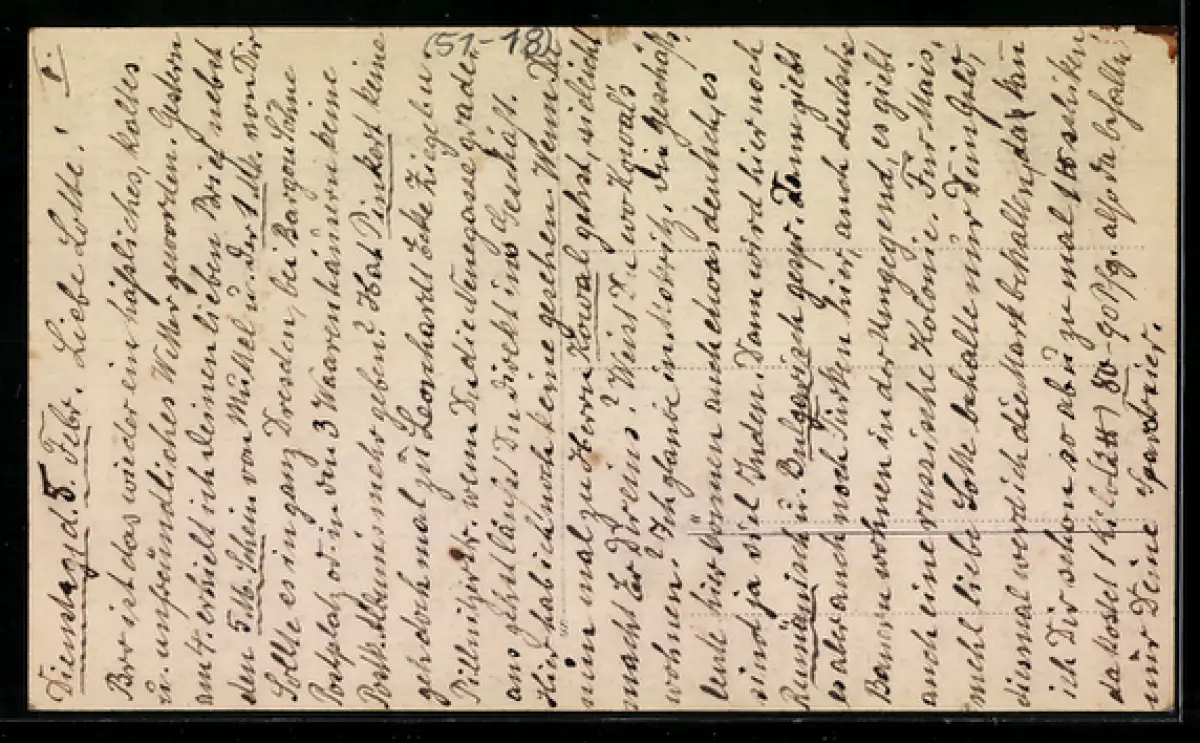 (51-18)
Dienstag d. 5. Febr. Liebe Lotte! I.
Brr ist das wieder ein häßliches, kaltes
u. unfreundliches Wetter geworden. Gestern
am 4. erhielt ich Deinen lieben Brief nebst
dem 5 M. Schein von Muttel u. der 1 M. von Dir
Sollte es in ganz Dresden, bei Bargou Söhne
Postplatz od. in den 3 Waarenhäusern keine
Postk. Albums mehr geben? Hat Pinkert keine
geh doch mal zu Leonhardt Ecke Ziegel u.
Pillnitzerstr. wenn Du die Neuegasse grade
aus gehst läufst Du direkt ins Geschäft.
Hier hab ich noch keine gesehen. Wenn Du
nun mal zu Herrn Kowal gehst, vielleicht
macht Er Dir eins? Weist Du wo Kowal's
wohnen? Ich glaube in Loschwitz. Die Geschäfts
leute hier können auch etwas deutsch, es
sind ja viel Juden. Dann wird hier noch
Rumänisch u. Bulgarisch gespr. Dann giebt
es aber auch noch Türken hier, auch deutsche
Bauern wohnen in der Umgegend, es giebt
auch eine russische Kolonie. Für Mais,
mehl liebe Lotte behalte nur Dein Geld,
diesmal werd ich die Mark behalten, da kan
ich Dir schon so ab u. zu mal 1 ℔ schicken
da kostet 1 Kilo (2 ℔) 80-90 Pfg. also da befalle
nur Deine